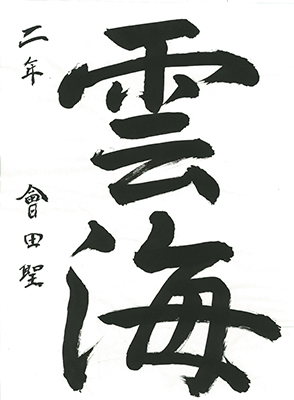 雲海
二年 會田聖